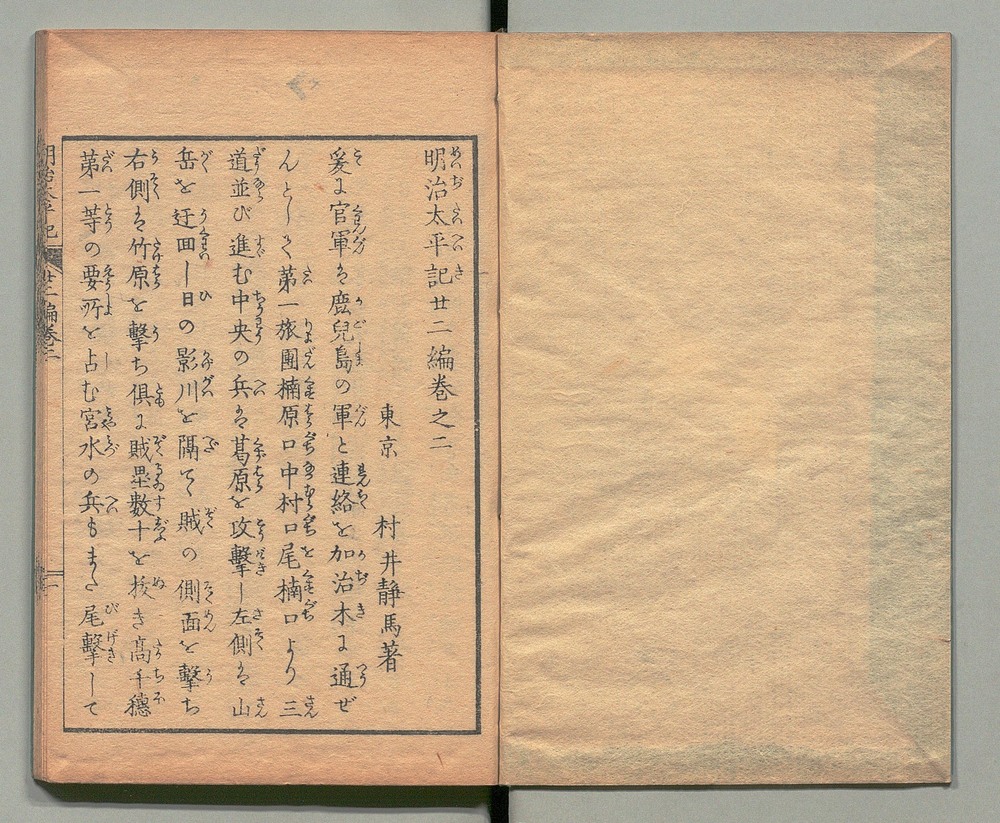 明治太平記廿二編巻之二
東京　村井静馬著
爰に官軍は鹿児島の軍と連絡を加治木に通ぜ
んとして第一旅團楠原口中村口尾楠口より三
道並び進む中央の兵は葛原を攻撃し左側は山
岳を迂回し日の影川を隔て賊の側面を撃ち
右側は竹原を撃ち倶に賊塁数十を抜き高千穂
第一等の要所を占む宮水の兵もまた尾撃して
明治太平記
廿二編巻二
一